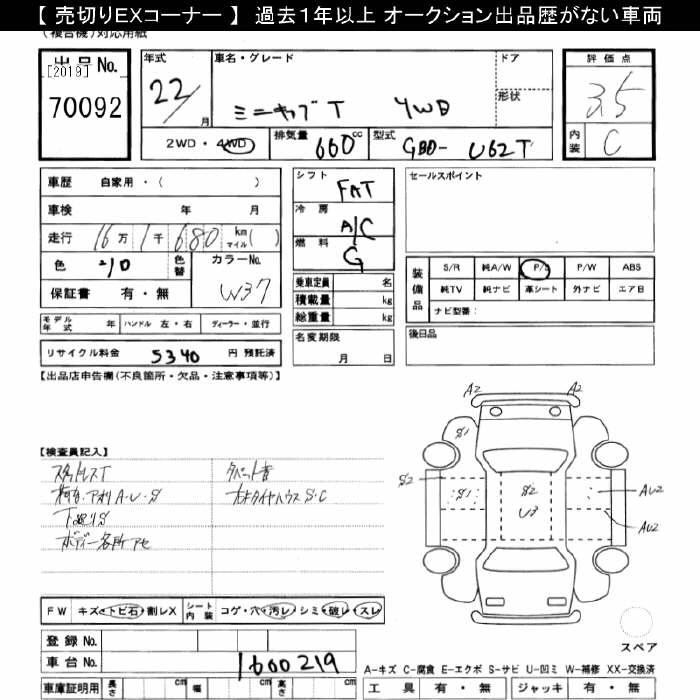 【 売切りEXコーナー 】 過去1年以上 オークション出品歴がない車両
(複合機)対応用紙
出品No.
[2019]
70092
年式
22/
月
車名・グレード
ミニキャブT 4WD
ドア
形状
評価点
3.5
内装
C
2WD・4WD
排気量
660
cc
型式
GBD- U62T
車歴 自家用・( )
車検 年 月
走行 16万 1千 680 km マイル( )
色 シロ 色替
カラーNo.
W37
保証書 有・無
モデル年式 年 ハンドル 左・右 ディーラー・並行
リサイクル料金 5340 円 預託済
シフト
FAT
冷房
A/C
燃料
G
乗車定員 名
積載量 kg
総重量 kg
名変期限
月 日
セールスポイント
装備品
S/R 純A/W P/S P/W ABS
純TV 純ナビ 革シート 外ナビ エアB
ナビ型番:
後日品
【出品店申告欄(不良箇所・欠品・注意事項等)】
【検査員記入】
スタッドレスT
タペット音
A・U・S
S・C
ボディー各所
A2
A2
S1
S2
S1
S2
U3
AU2
AU2
スペア
FW キズ・トビ石・割レX
シート内装 コゲ・穴・汚レ・シミ・破レ・スレ
登録No.
車台No.
1600219
車庫証明用 長さ cm 幅 cm 高さ cm
A-キズ C-腐食 E-エクボ S-サビ U-凹ミ W-補修 XX-交換済
工具 有・無 ジャッキ 有・無